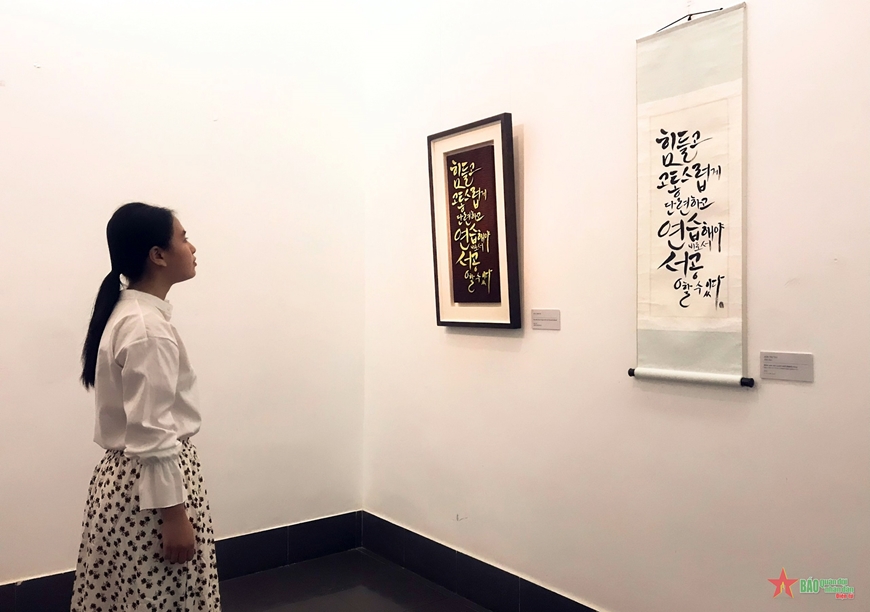 힘들고
고통스럽게
단련하고
연습해야
비로서
서공
할 수 있다
힘들고
고통스럽게
단련하고
연습해야
비로서
서공
할 수 있다
BÁO QUÂN ĐỘI
NHÂN DÂN
Điện tử